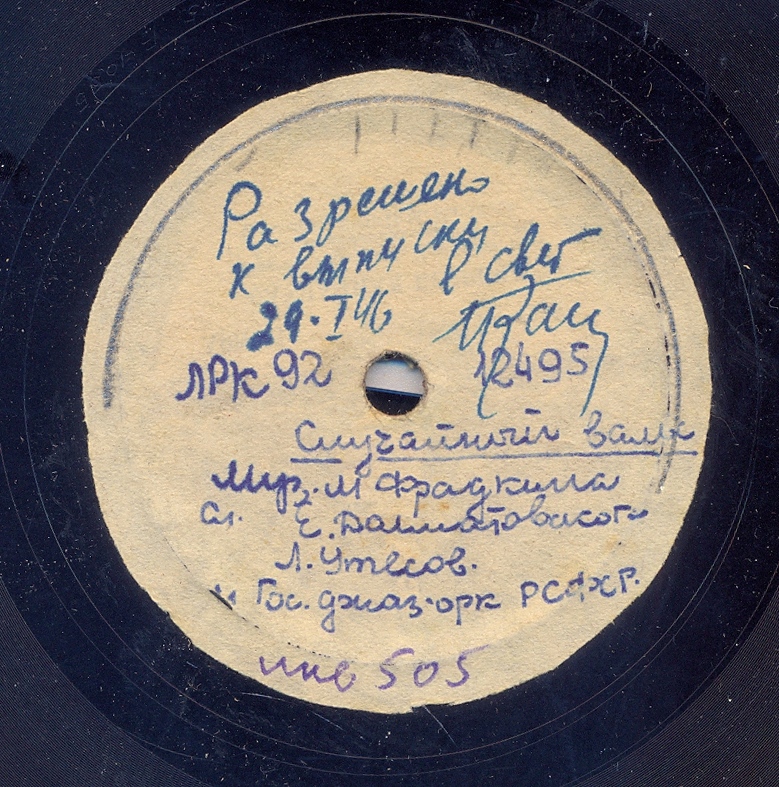 Разрешено
к выпуску в свет
29.I 46
ЛРК 92 12495
Случайный вальс
Муз. М Фрадкина
Сл. Е. Долматовского
Л. Утесов.
и Гос. джаз-орк РСФСР.
инв 505